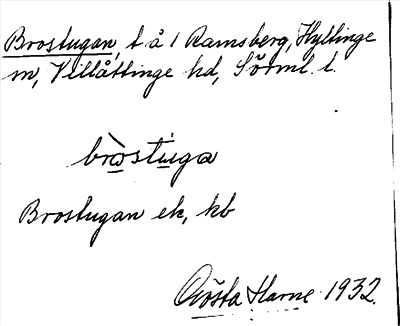 Brostugan, t å 1 Ramsberg, Hyltinge
sn, Villåttinge hd, Sörml. l.
bròstùga
Brostugan ek, kb
Gösta Harne 1932.